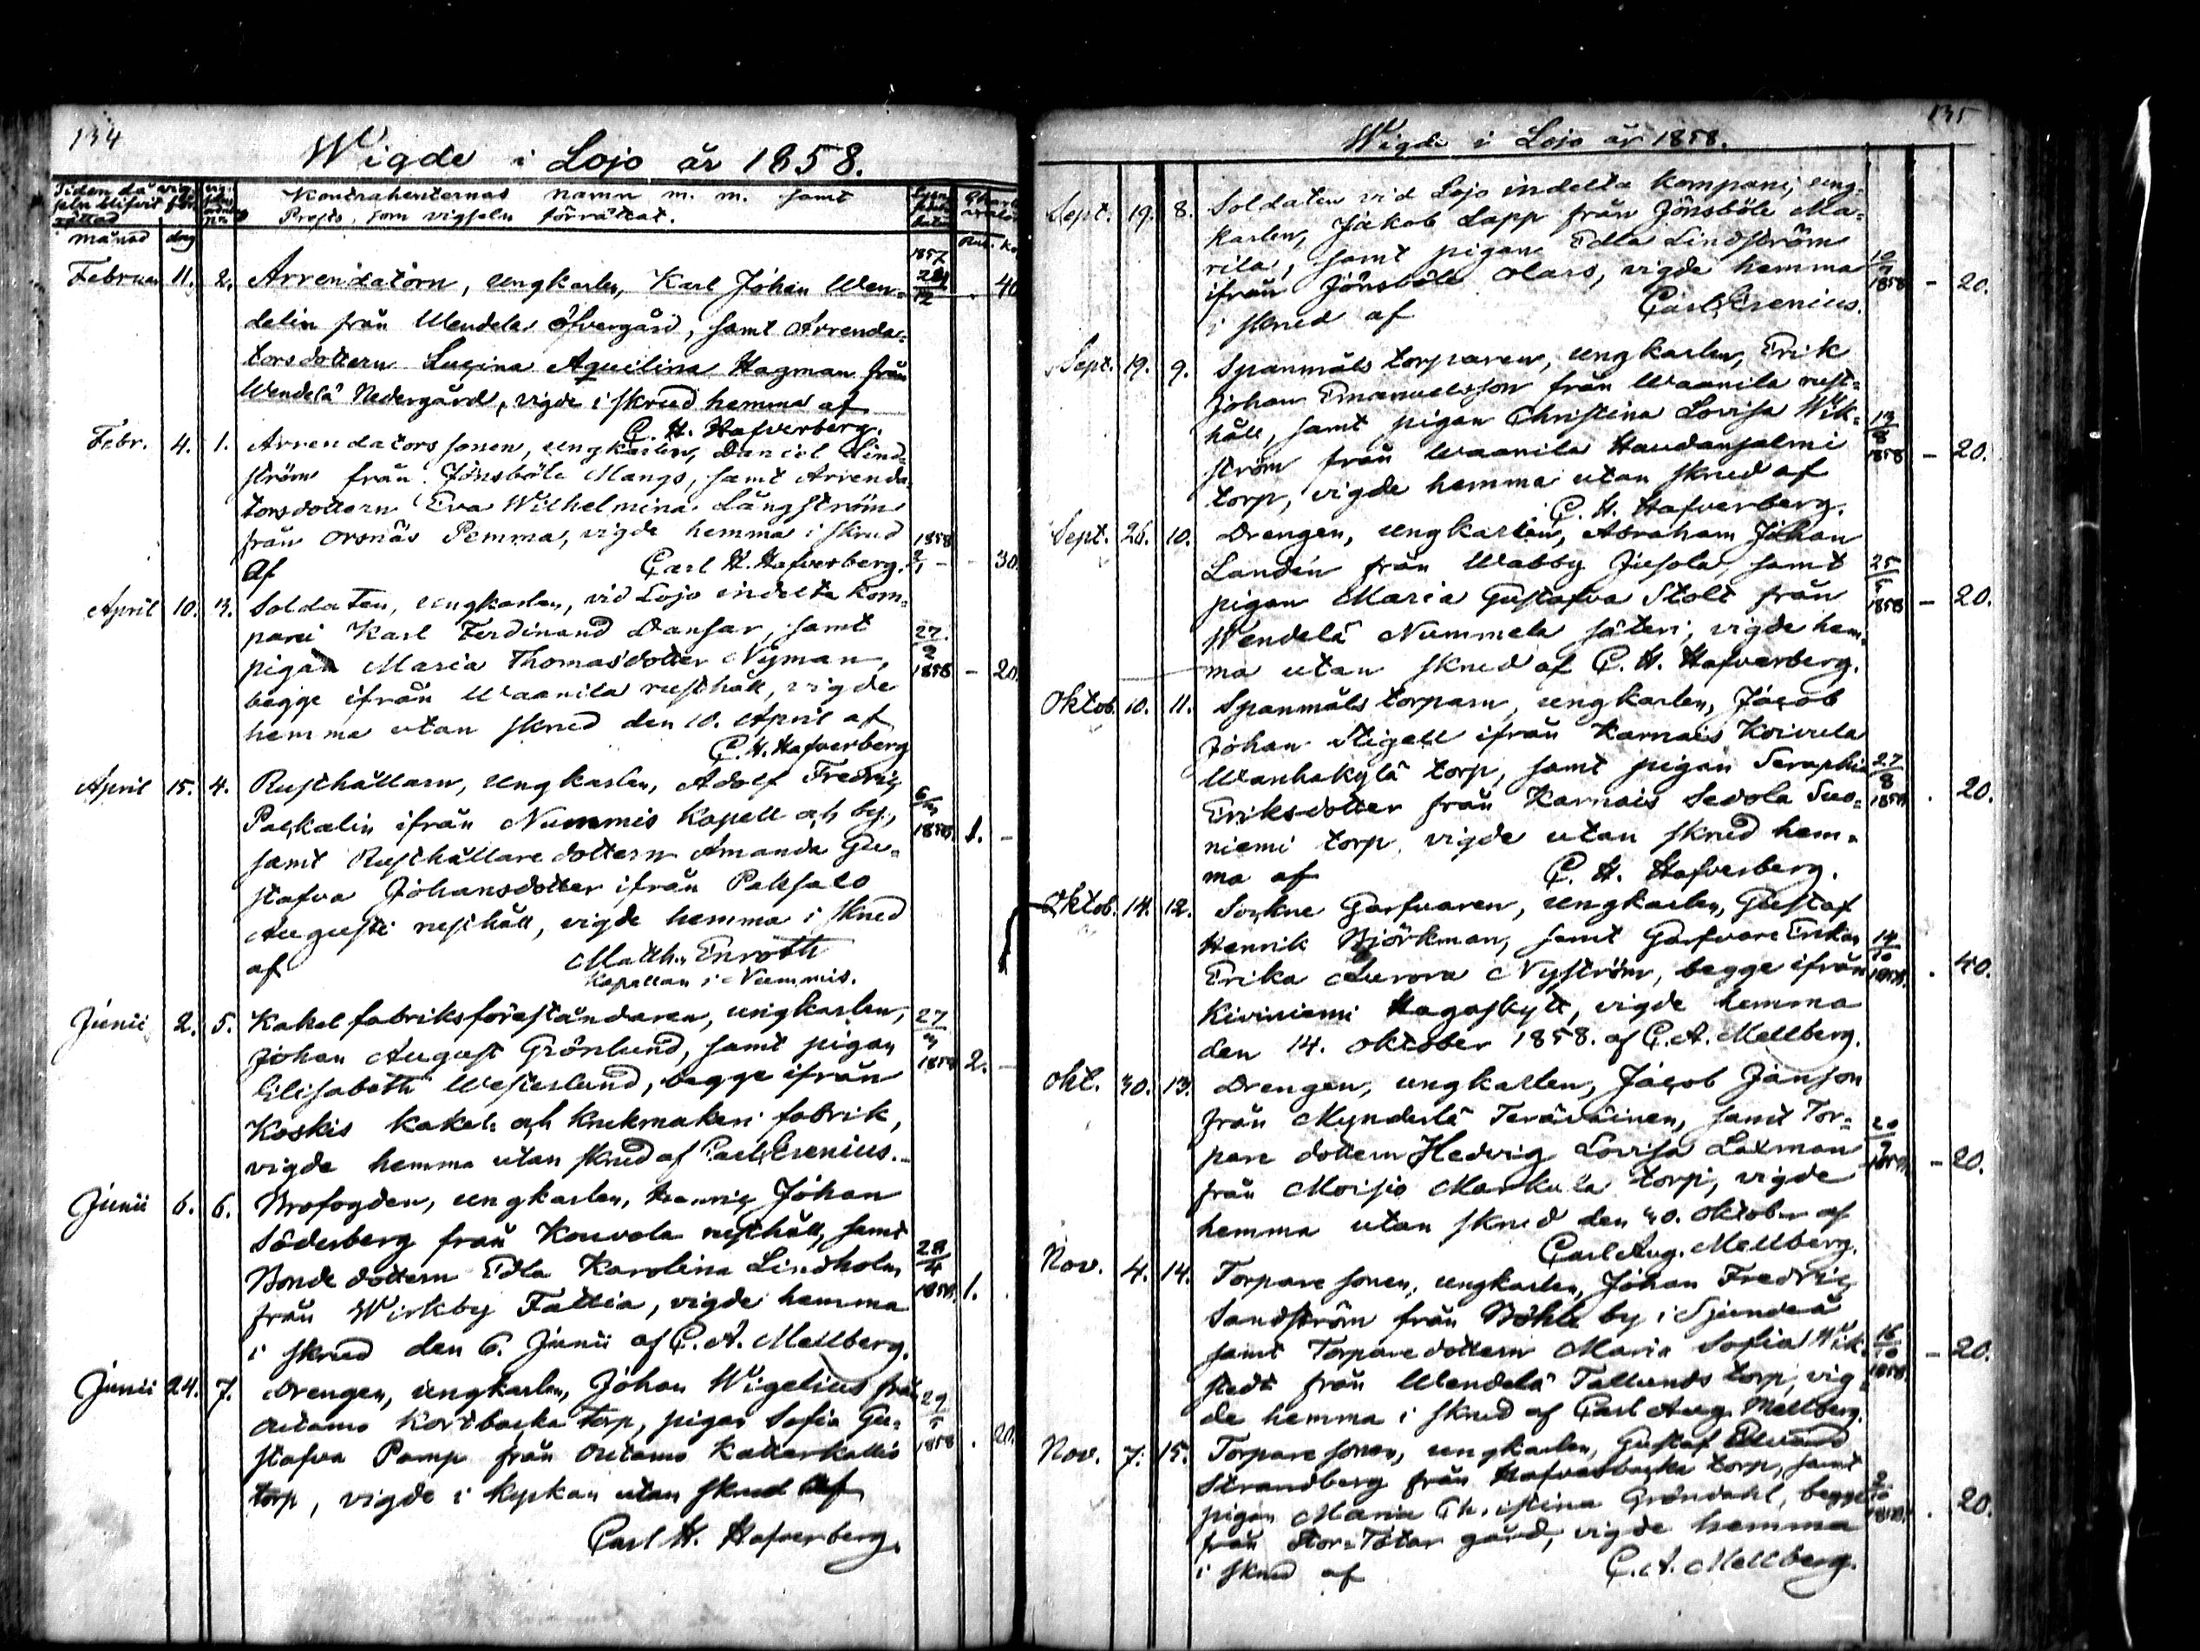 134
Wigde i Lojo år 1858.
Tiden då vig-
seln blifvit för-
rättad
månad dag
Kontrahenternas namn m. m. samt
Prests, som vigseln förrättat.
Februar. 11. 2. Arrendatorn, ungkarlen, Karl Johan Wen- 1857 24/12 . 40
delin från Wendelä Öfvergård, samt Arrenda-
torsdottern Lucina Aquilina Hagman från
Wendelä Nedergård, vigde i skrud hemma af
C. H. Hafverberg.
Febr. 4. 1. Arrendators sonen, ungkarlen, Daniel Lind-
ström från Jönsböle Mangs, samt Arrenda-
torsdottern Eva Wilhelmina Långström
från Orsnäs Pemma, vigde hemma i skrud 1858
af Carl H. Hafverberg. 2/1 - - 30.
April 10. 3. Soldaten, ungkarlen, vid Lojo indelta kom-
pani Karl Ferdinand Dansar, samt 27/2
pigan Maria Thomasdotter Nyman, 1858 - 20.
begge ifrån Waanila rusthåll, vigde
hemma utan skrud den 10. April af
C. H. Hafverberg
April 15. 4. Rusthållarn, ungkarlen, Adolf Fredric
Packalin ifrån Nummis Kapell och by, 1858. 1. -
samt Rusthållare dottern Amanda Gu-
stafva Johansdotter ifrån Paksalo
Augusti rusthåll, vigde hemma i skrud
af Matth. Enroth
Kapellan i Nummis.
Junii 2. 5. Kakelfabriksföreståndaren, ungkarlen, 27/3
Johan August Grönlund, samt pigan 1858 2. -
Elisabeth Westerlund, begge ifrån
Koskis kakel- och krukmakeri fabrik,
vigde hemma utan skrud af Carl Erenius.
Junii 6. 6. Brofogden, ungkarlen, Henric Johan
Söderberg från Kouvola rusthåll, samt 28/4
Bonde dottern Edla Karolina Lindholm 1858. 1.
från Wirkby Fattia, vigde hemma
i skrud den 6. Junii af C. A. Mellberg.
Junii 24. 7. Drengen, ungkarlen, Johan Wigelius från 29/5
Outamo Kortbacka torp, pigan Sofia Gu- 1858 . 20.
stafva Pamp från Outamo Kattarkallio
torp, vigde i kyrkan utan skrud af
Carl H. Hafverberg.
135
Wigde i Lojo år 1858.
Sept. 19. 8. Soldaten vid Lojo indelta kompani, ung-
karlen, Jakob Lapp från Jönsböle Ma-
rila, samt pigan Edla Lindström
ifrån Jönsböle Olars, vigde hemma 1858 - 20.
i skrud af Carl Erenius.
Sept. 19. 9. Spanmåls torparen, ungkarlen, Erik
Johan Emanuelsson från Waanila rust-
håll, samt pigan Christina Lovisa Wik- 13/8
ström från Waanila Haudansalmi 1858 - 20.
torp, vigde hemma utan skrud af
C. H. Hafverberg.
Sept. 26. 10. Drengen, ungkarlen, Abraham Johan
Landen från Wabby Jusola, samt 25/5
pigan Maria Gustafva Stolt från 1858 - 20.
Wendelä Nummela säteri, vigde hem-
ma utan skrud af C. H. Hafverberg.
Oktob. 10. 11. Spanmåls torparn, ungkarlen, Jacob
Johan Stigell ifrån Karnais Koivula
Wanhakylä torp, samt pigan Seraphia 27/8
Eriksdotter från Karnais Sedola Suo- 1858. . 20.
niemi torp, vigde utan skrud hem-
ma af C. H. Hafverberg.
Oktob. 14. 12. Sockne Garfvaren, ungkarlen, Gustaf
Henrik Björkman, samt Garfvare Enkan 14/10
Erika Aurora Nyström, begge ifrån 1858. . 40.
Kiviniemi Hagaskytt, vigde hemma
den 14. Oktober 1858. af C. A. Mellberg.
Okt. 30. 13. Drengen, ungkarlen, Jacob Janson
från Mynderlä Teräväinen, samt Tor- 20/9
pare dottern Hedvig Lovisa Laxman 1858. - 20.
från Moisio Markula torp, vigde
hemma utan skrud den 30. Oktober af
Carl Aug. Mellberg.
Nov. 4. 14. Torpare sonen, ungkarlen, Johan Fredric
Sandström från Böhle by i Sjundeå
samt Torpare dottern Maria Sofia Wik- 16/10 - 20.
stedt från Wendelä Tallunds torp, vig- 1858.
de hemma i skrud af Carl Aug. Mellberg.
Nov. 7. 15. Torpare sonen, ungkarlen, Gustaf Edvard
Strandberg från Hafverbacka torp, samt
pigan Maria Christina Gröndahl, begge 1858. . 20.
från Stor-Tötar gård, vigde hemma
i skrud af C. A. Mellberg.